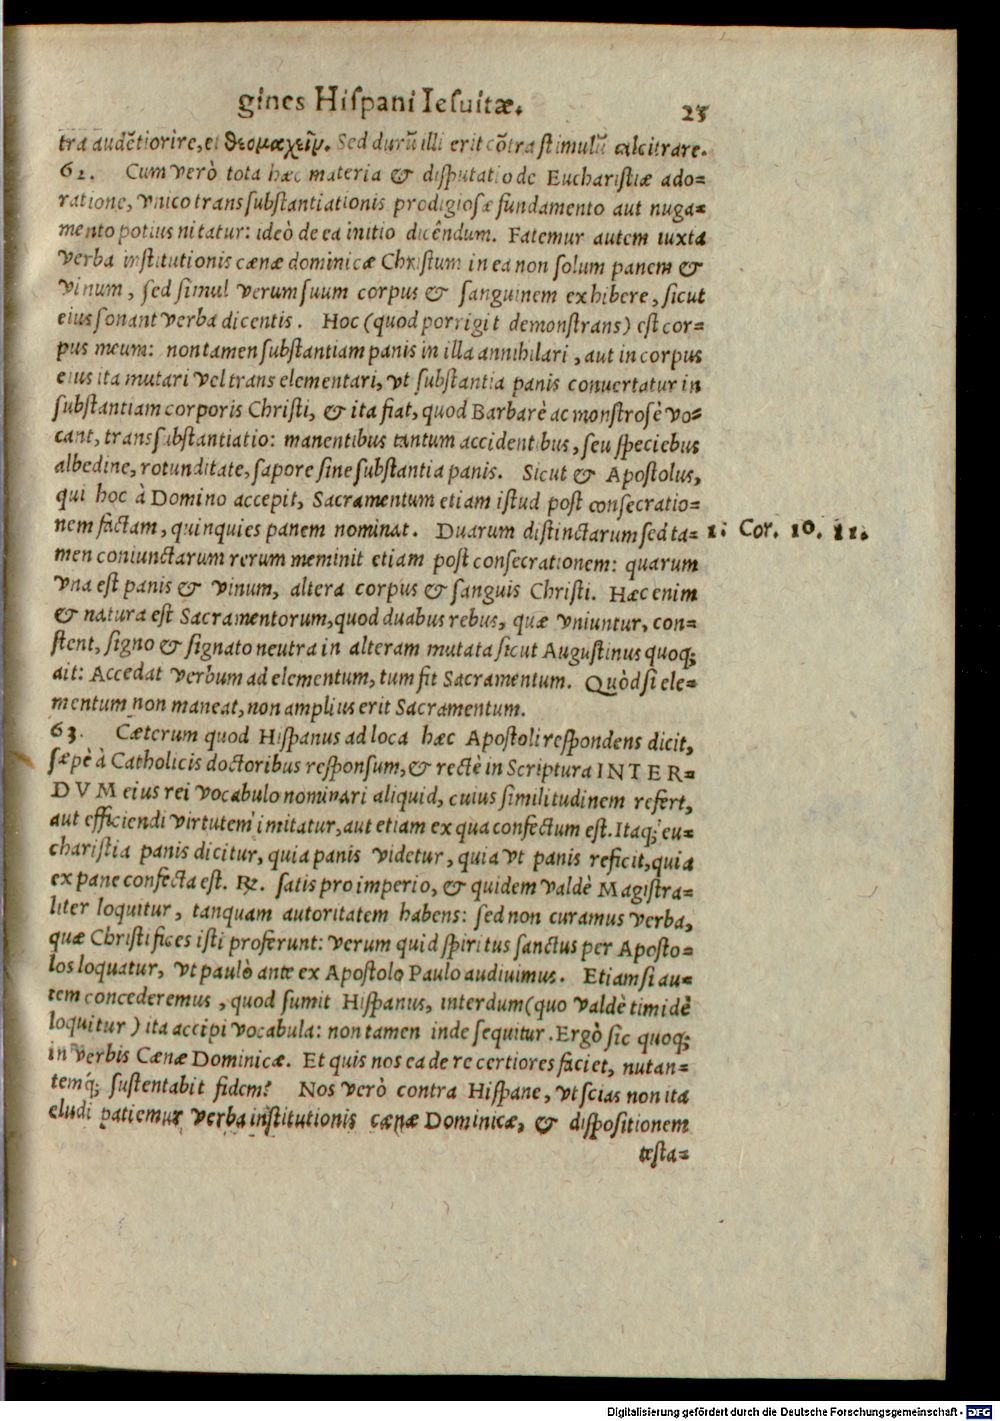 gines Hiſpani Ieſuitæ. 23
tra audẽtiorire, et θεομαχεῖν. Sed durũ illi erit cõtra ſtimulũ calcitrare.
62. Cum verò tota hæc materia & diſputatio de Euchariſtiæ ado=
ratione, vnico transſubſtantiationis prodigioſæ fundamento aut nuga=
mento potius nitatur: ideò de ea initio dicendum. Fatemur autem iuxta
verba inſtitutionis cænæ dominicæ Chriſtum in ea non ſolum panem &
vinum, ſed ſimul verum ſuum corpus & ſanguinem exhibere, ſicut
eius ſonant verba dicentis. Hoc (quod porrigit demonſtrans) eſt cor=
pus meum: non tamen ſubſtantiam panis in illa annihilari, aut in corpus
eius ita mutari vel transelementari, vt ſubſtantia panis conuertatur in
ſubſtantiam corporis Chriſti, & ita fiat, quod Barbarè ac monſtroſè vo=
cant, transſubſtantiatio: manentibus tantum accidentibus, ſeu ſpeciebus
albedine, rotunditate, ſapore ſine ſubſtantia panis. Sicut & Apoſtolus,
qui hoc à Domino accepit, Sacramentum etiam iſtud poſt conſecratio=
nem factam, quinquies panem nominat. Duarum diſtinctarum ſed ta=
1. Cor. 10. 11.
men coniunctarum rerum meminit etiam poſt conſecrationem: quarum
vna eſt panis & vinum, altera corpus & ſanguis Chriſti. Hæc enim
& natura eſt Sacramentorum, quod duabus rebus, quæ vniuntur, con=
ſtent, ſigno & ſignato neutra in alteram mutata ſicut Auguſtinus quoq;
ait: Accedat verbum ad elementum, tum fit Sacramentum. Quòd ſi ele=
mentum non maneat, non amplius erit Sacramentum.
63. Cæterum quod Hiſpanus ad loca hæc Apoſtoli reſpondens dicit,
ſæpè à Catholicis doctoribus reſponſum, & rectè in Scriptura INTER=
DVM eius rei vocabulo nominari aliquid, cuius ſimilitudinem refert,
aut efficiendi virtutem imitatur, aut etiam ex qua confectum eſt. Itaq; eu=
chariſtia panis dicitur, quia panis videtur, quia vt panis reficit, quia
ex pane confecta eſt. ℞. ſatis pro imperio, & quidem valdè Magiſtra=
liter loquitur, tanquam autoritatem habens: ſed non curamus verba,
quæ Chriſtifices iſti proferunt: verum quid ſpiritus ſanctus per Apoſto=
los loquatur, vt paulò ante ex Apoſtolo Paulo audiuimus. Etiamſi au=
tem concederemus, quod ſumit Hiſpanus, interdum (quo valdè timidè
loquitur) ita accipi vocabula: non tamen inde ſequitur. Ergò ſic quoq;
in verbis Cænæ Dominicæ. Et quis nos ea de re certiores faciet, nutan=
temq́; ſuſtentabit fidem? Nos verò contra Hiſpane, vt ſcias non ita
eludi patiemur verba inſtitutionis cænæ Dominicæ, & diſpoſitionem
teſta=
Digitalisierung gefördert durch die Deutsche Forschungsgemeinschaft - DFG